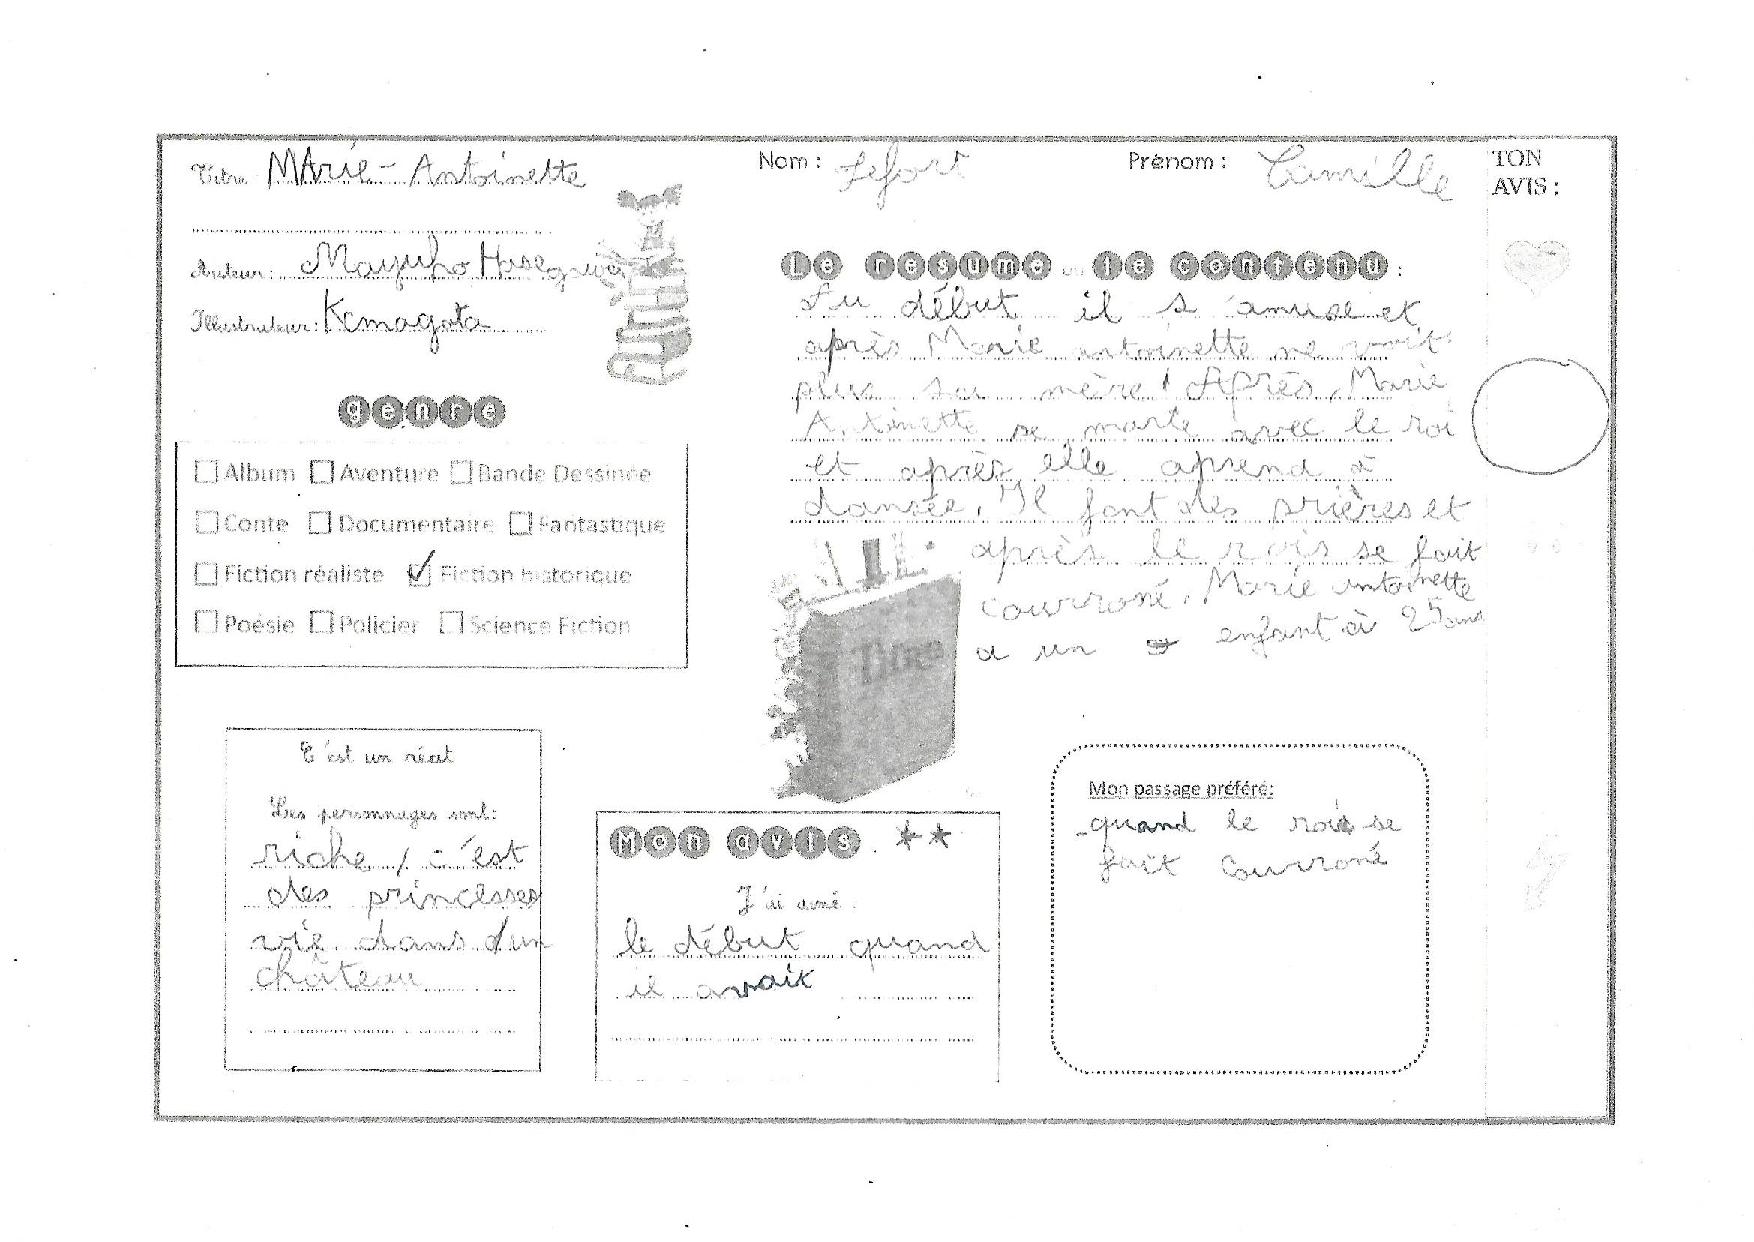 Titre MArie-Antoinette
Auteur: Mayuho Hasegawa
Illustrateur: Kemagata
genre
Album Aventure Bande Dessinée
Conte Documentaire Fantastique
Fiction réaliste Fiction historique
Poésie Policier Science Fiction
C'est un récit
Les personnages sont:
riche, c'est
des princesses
vie dans d'un
château
Nom : Lefort Prénom : Camille
Le resume ou le contenu :
Au début il s'amuse et
après Marie antoinette ne voit
plus sa mère! Après, Marie
Antoinette se marie avec le roi
et après elle aprend à
dansée. Il font des prières et
après le rois se fait
courroné. Marie antoinette
a un enfant à 25 ans
Titre
Mon avis. **
J'ai aimé
le début quand
il avait
Mon passage préféré:
-quand le rois se
fait courroné
TON
AVIS :